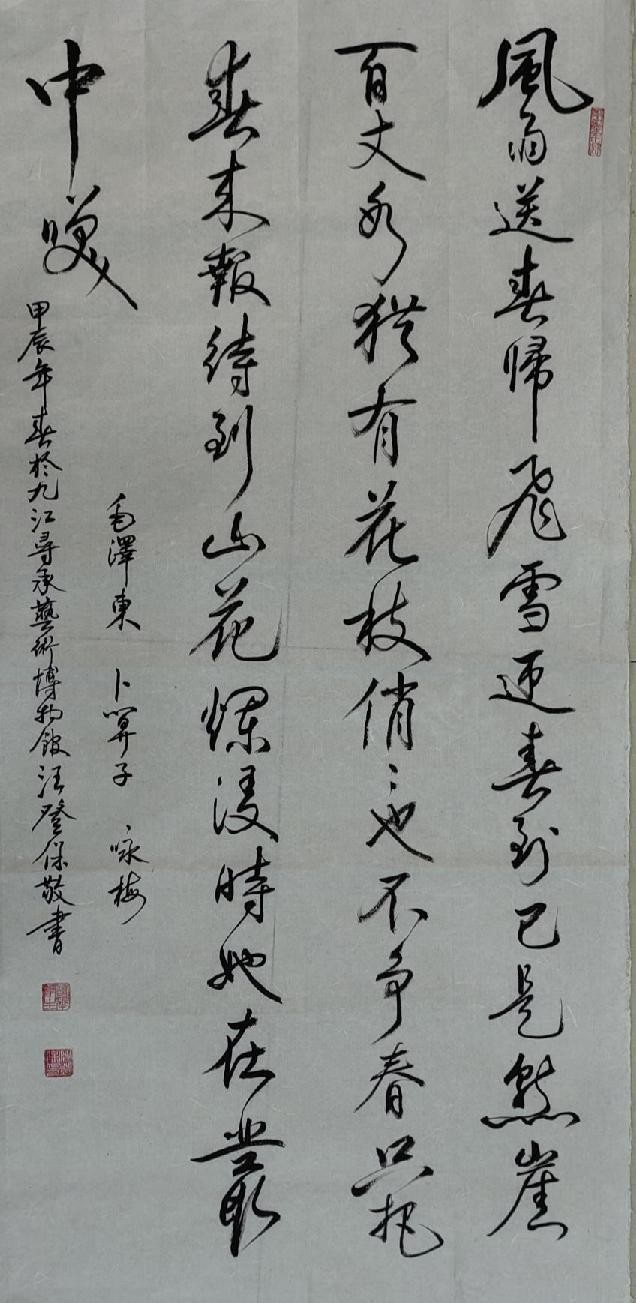 風雨送春歸飛雪迎春到已是懸崖
百丈冰猶有花枝俏俏也不爭春只把
春來報待到山花爛漫時她在叢
中笑
毛澤東 卜算子 咏梅
甲辰年春於九江尋承藝術博物館汪登保敬書